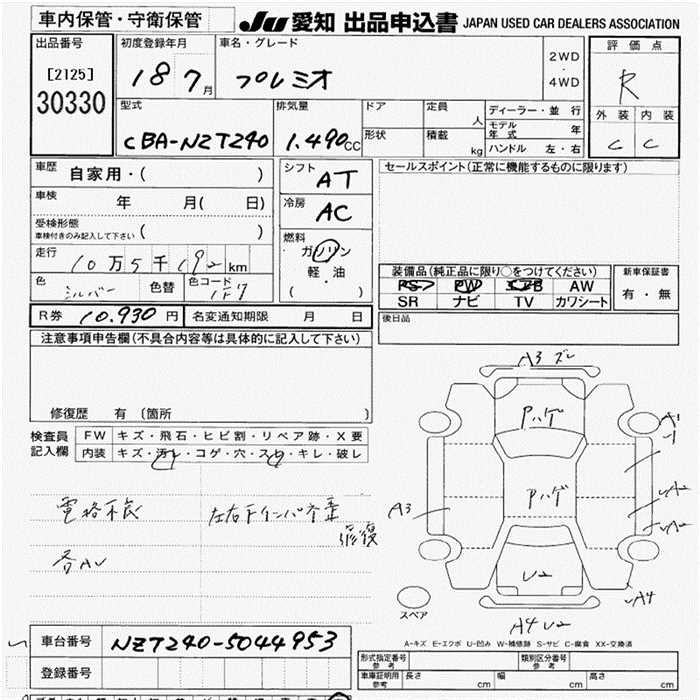 車内保管・守衛保管
JU 愛知 出品申込書 JAPAN USED CAR DEALERS ASSOCIATION
出品番号
[2125]
30330
初度登録年月
18 7月
車名・グレード
プレミオ
2WD
・
4WD
評価点
R
外装 内装
C C
型式
CBA-NZT240
排気量
1.490cc
ドア
形状
定員
人
積載
kg
ディーラー・並 行
モデル
年式
年
ハンドル 左・右
車歴
自家用・( )
車検
年 月( 日)
受検形態
車検付きのみ記入して下さい ( )
走行
10万5千192km
色
シルバー
色替
色コード
1F7
シフト
AT
冷房
AC
燃料
ガソリン
軽・油
( )
セールスポイント(正常に機能するものに限ります)
装備品(純正品に限り○をつけてください)
PS PW AW
SR ナビ TV カワシート
新車保証書
有・無
R券 10.930円
名変通知期限 月 日
後日品
注意事項申告欄(不具合内容等は具体的に記入して下さい)
修復歴 有 〔箇所 〕
検査員
記入欄
FW キズ・飛石・ヒビ割・リペア跡・X要
内装 キズ・汚レ・コゲ・穴・スレ・キレ・破レ
電格不良
左右Fインパネ歪
修復
各AU
A3 ズレ
Pハゲ
A1
Pハゲ
A3
U2
A4
A4 U2
スペア
A-キズ E-エクボ U-凹み W-補修跡 S-サビ C-腐食 XX-交換済
車台番号 NZT240-5044953
登録番号
形式指定番号
参考
類別区分番号
参考
車庫証明用
参考
長さ cm
幅 cm
高さ cm